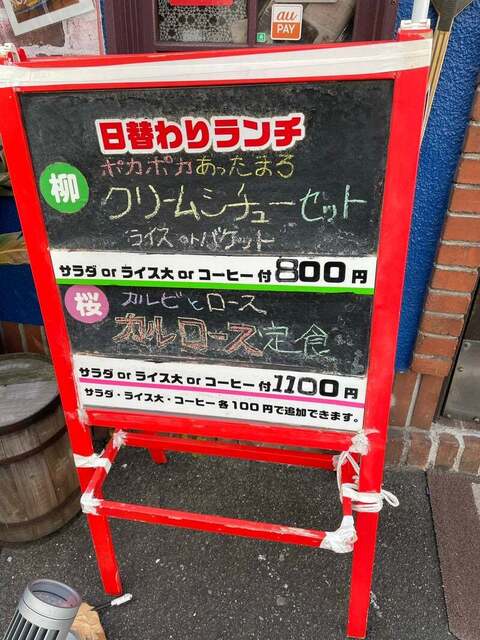 au
PAY
日替わりランチ
柳
ポカポカあったまる
クリームシチューセット
ライス orバケット
サラダ or ライス大 or コーヒー 付 800 円
桜
カルビとロース
カルロース定食
サラダ or ライス大 or コーヒー 付 1100 円
サラダ・ライス大・コーヒー 各100円で追加できます。